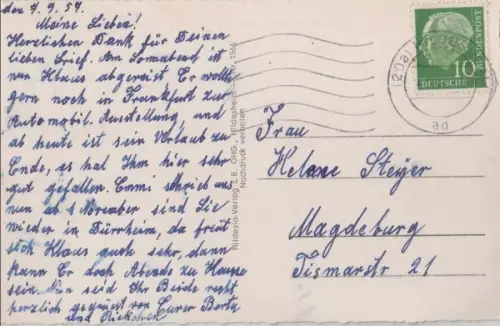 den 7.9.57.
Meine Lieben!
Herzlichen Dank für Deinen
lieben Brief. Am Sonnabend ist
nun Klaus abgereist Er wollte
gern noch in Frankfurt zur
Automobil. Ausstellung, und
ab heute ist sein Urlaub zu
Ende, es hat Ihm hier sehr
gut gefallen. Emmi schrieb uns
nun ab November sind Sie
wieder in Dürrheim, da freut
sich Klaus auch sehr, dann
kann Er doch Abends zu Hause
sein. Nun seid Ihr Beide recht
herzlich gegrüsst von Eurer Berta
und
Hildesia-Verlag E.B. OHG., Hildesheim 1566
Nachdruck verboten
(20a)
ad
10
DEUTSCHE
BUNDESPOST
Frau
Helene Steyer
Magdeburg
Tismarstr 21